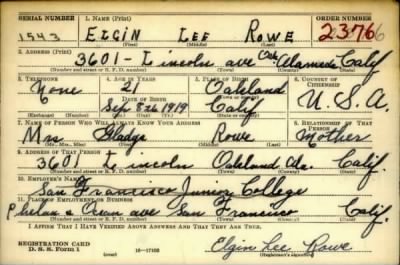 SERIAL NUMBER 1. NAME (Print) ORDER NUMBER
1543 ELGIN LEE ROWE 2376
(First) (Middle) (Last)
2. ADDRESS (Print)
3601 - Lincoln ave Oak Alameda Calif
(Number and street or R. F. D. number) (Town) (County) (State)
3. TELEPHONE 4. AGE IN YEARS 5. PLACE OF BIRTH 6. COUNTRY OF CITIZENSHIP
None 21 Oakland
DATE OF BIRTH
Sep 8th 1919 Calif U.S.A.
(Exchange) (Number) (Mo.) (Day) (Yr.) (State or country)
7. NAME OF PERSON WHO WILL ALWAYS KNOW YOUR ADDRESS 8. RELATIONSHIP OF THAT PERSON
Mrs Gladys Rowe Mother
(Mr., Mrs., Miss) (First) (Middle) (Last)
9. ADDRESS OF THAT PERSON
3601 Lincoln Oakland Calif.
(Number and street or R. F. D. number) (Town) (County) (State)
10. EMPLOYER'S NAME
San Francisco Junior College
11. PLACE OF EMPLOYMENT OR BUSINESS
Phelan Ocean ave San Francisco Calif.
(Number and street or R. F. D. number) (Town) (County) (State)
I AFFIRM THAT I HAVE VERIFIED ABOVE ANSWERS AND THAT THEY ARE TRUE.
REGISTRATION CARD
D. S. S. Form 1 16-17105 Elgin Lee Rowe
(Registrant's signature)